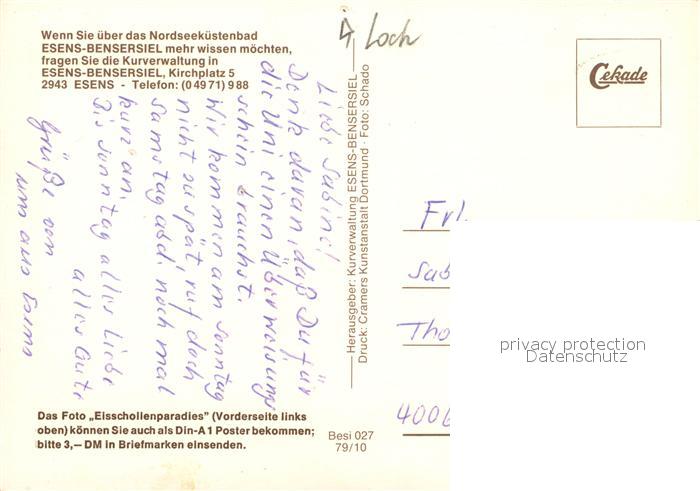 Wenn Sie über das Nordseeküstenbad
ESENS-BENSERSIEL mehr wissen möchten,
fragen Sie die Kurverwaltung in
ESENS-BENSERSIEL, Kirchplatz 5
2943 ESENS - Telefon: (0 49 71) 9 88
Liebe Sabine!
Denk daran, daß Du für
die Uni einen Überweisungs
schein brauchst.
Wir kommen am Sonntag
nicht zu spät, ruf doch
Samstag abd. noch mal
kurz an.
Bis Sonntag alles Liebe
alles Gute
Grüße von
Das Foto „Eisschollenparadies" (Vorderseite links
oben) können Sie auch als Din-A1 Poster bekommen;
bitte 3,— DM in Briefmarken einsenden.
Herausgeber: Kurverwaltung ESENS-BENSERSIEL
Druck: Cramers Kunstanstalt Dortmund · Foto: Schado
Besi 027
79/10
Loch
Cekade
Frl.
Sab
Tho
400
privacy protection
Datenschutz